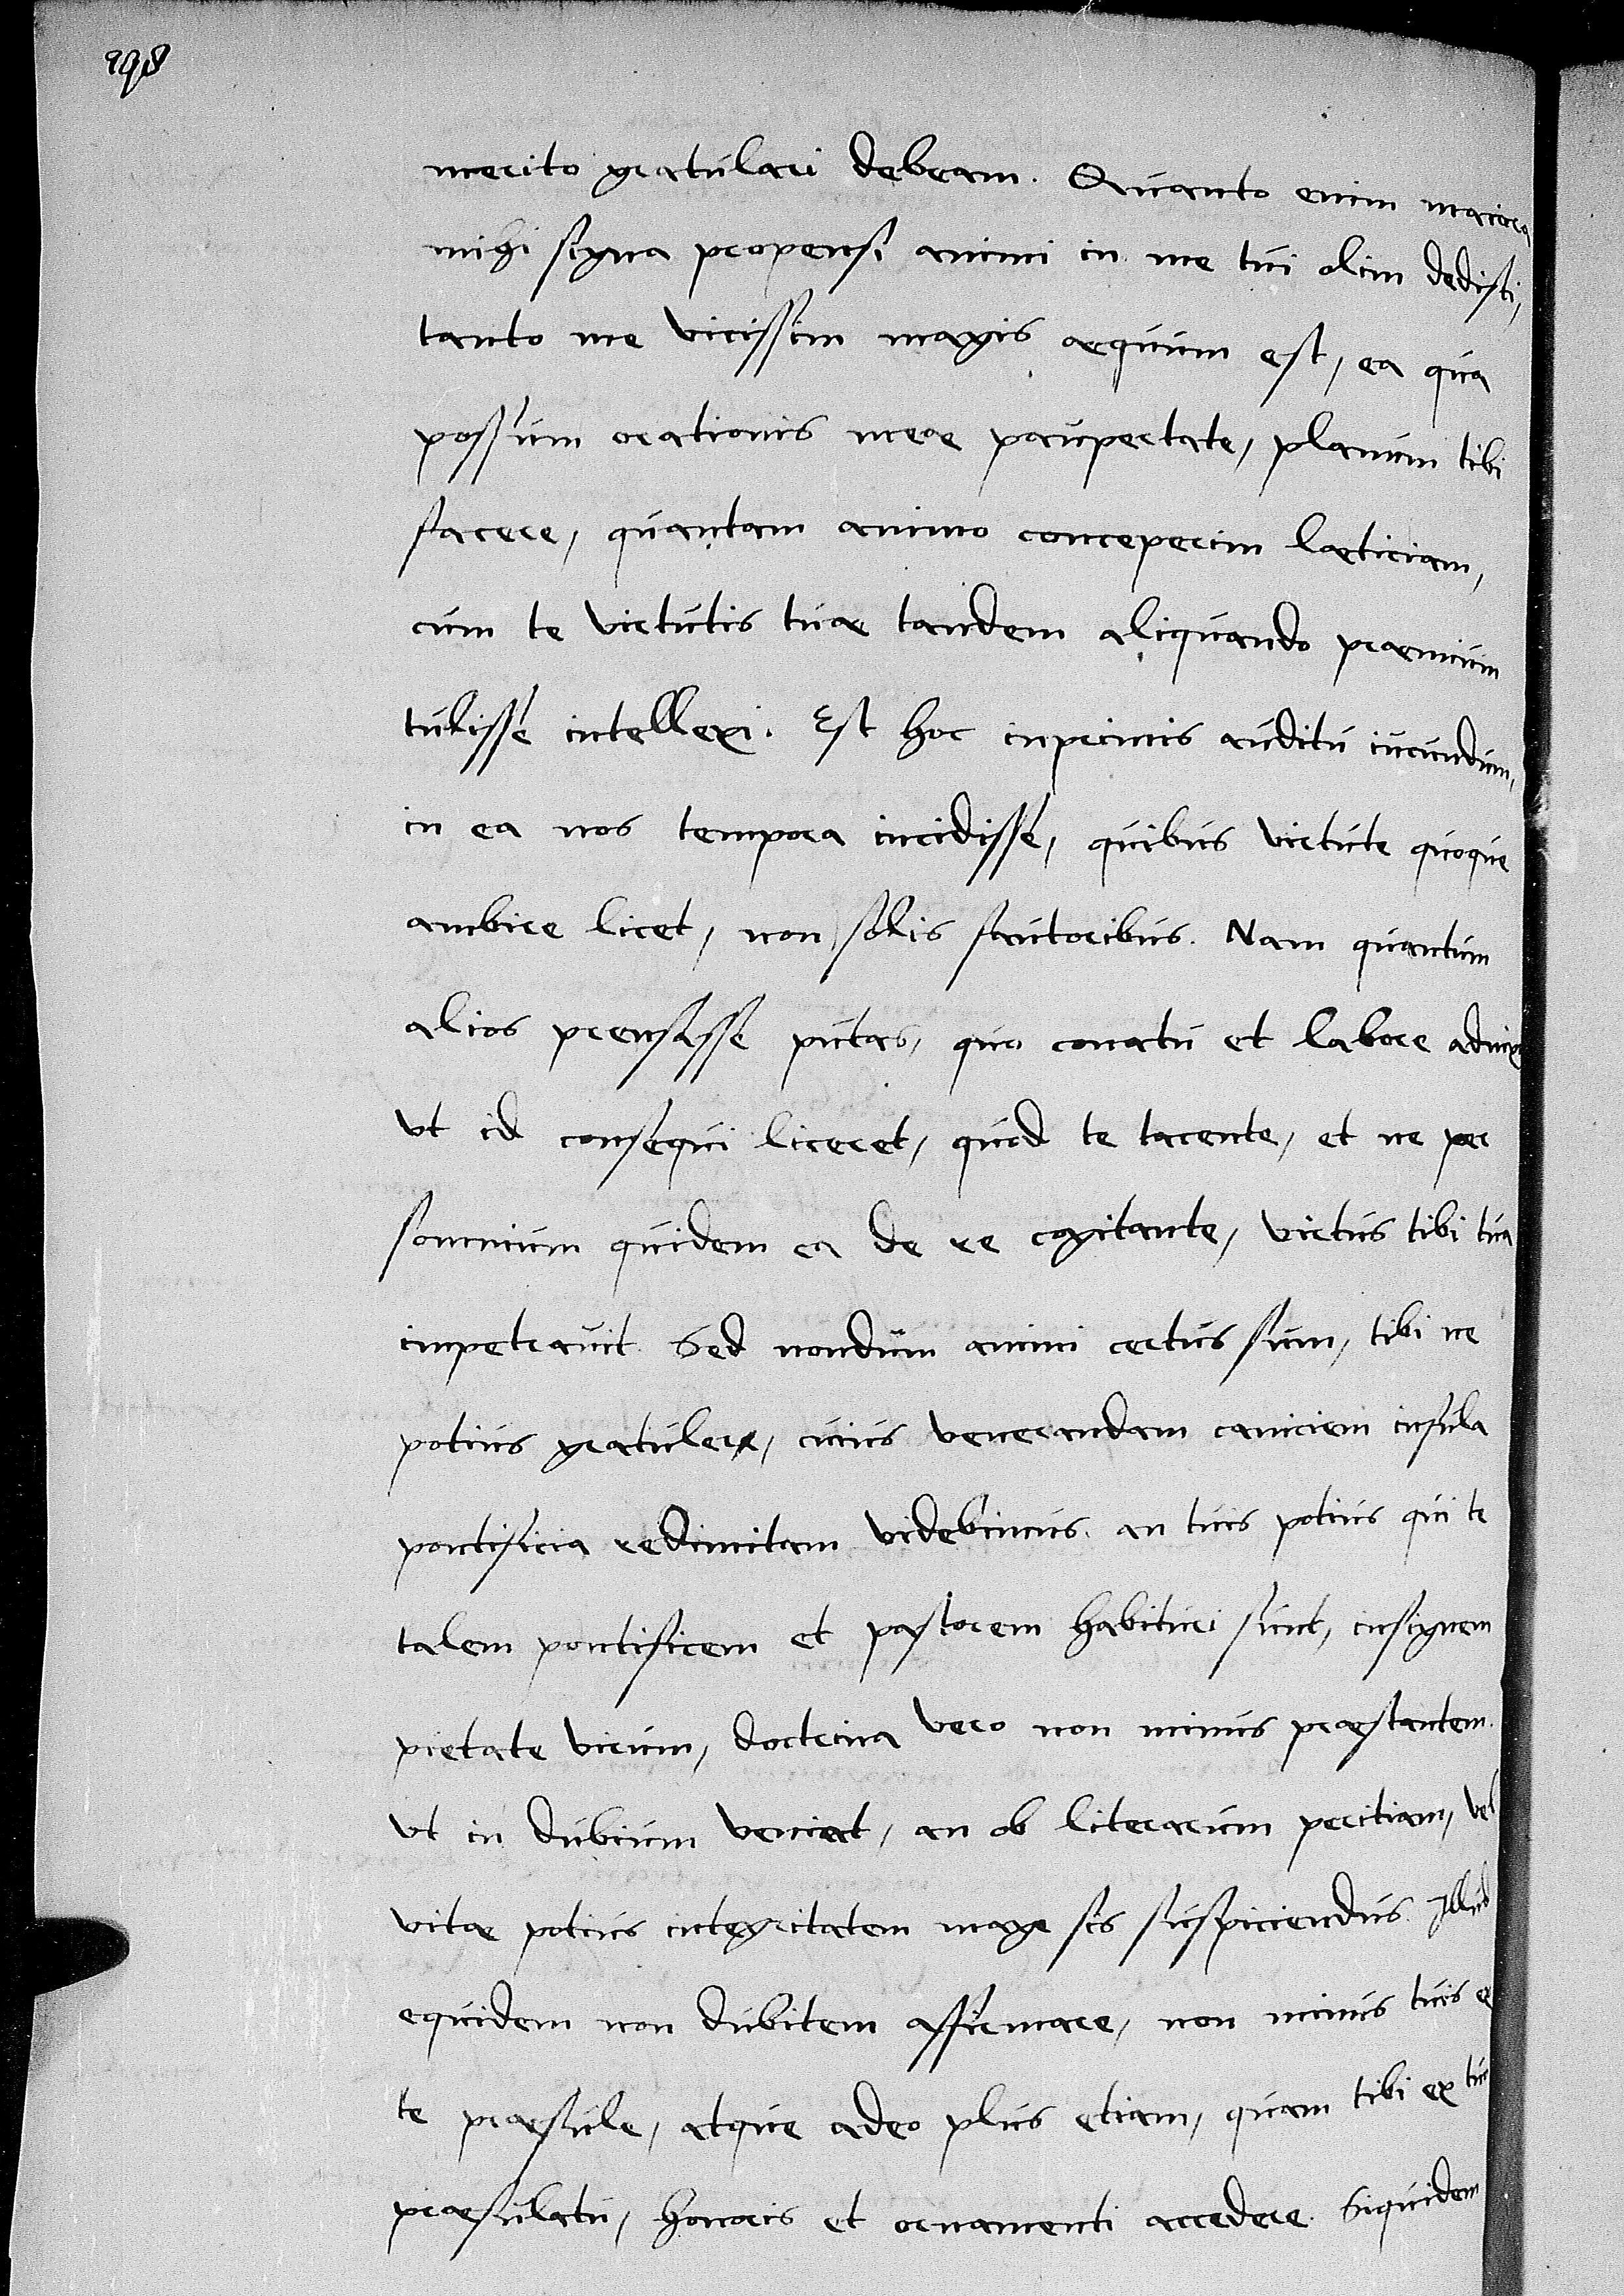 298
merito gratulari debeam. Quanto enim maiora
mihi signa propensi animi in me tui olim dedisti,
tanto me vicissim magis aequum est, ea qua
possum orationis meae paupertate, planum tibi
facere, quantam animo conceperim laeticiam,
cum te virtutis tuae tandem aliquando praemium
tulisse intellexi. Est hoc inprimis auditu iucundum,
in ea nos tempora incidisse, quibus virtute quoque
ambire licet, non solis fautoribus. Nam quantum
alios prensasse putas, quo conatu et labore
ut id consequi liceret, quod te tacente, et ne per
somnium quidem ea de re cogitante, virtus tibi tua
impetravit. Sed nondum animi certus sum, tibi ne
potius gratuler, cuius venerandam caniciem infula
pontificia redimitam videbimus. an tuis potius qui te
talem pontificem et pastorem habituri sunt, insignem
pietate virum, doctrina vero non minus praestantem.
ut in dubium veniat, an ob literarum peritiam, vel
vitae potius integritatem mage sis suspiciendus. Illud
equidem non dubitem affirmare, non minus tuis ex
te praesule, atque adeo plus etiam, quam tibi ex tuo
praesulatu, honoris et ornamenti accedere. Siquidem